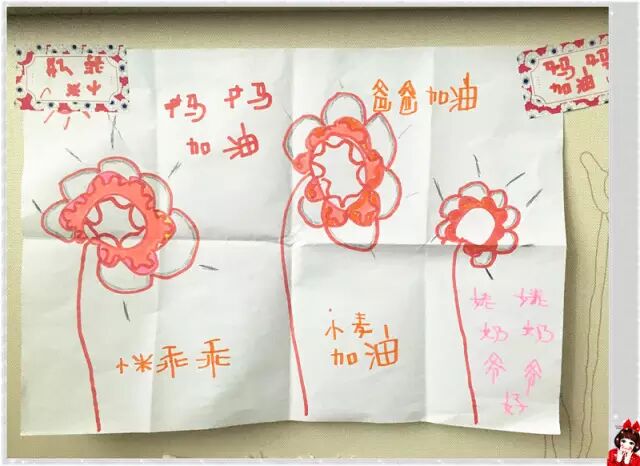 妈妈
加油
妈妈
加油
爸爸加油
小米乖乖
小麦
加油
姥姥
奶奶
爷爷
好